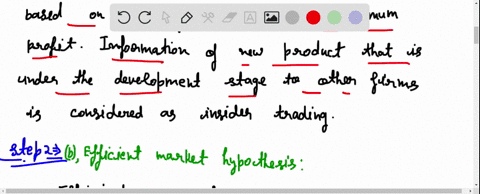 based on mum
profit. Information of new product that is
under the development stage to other firms
is considered as insider trading.
step2→ (b), Efficient market hypothesis: